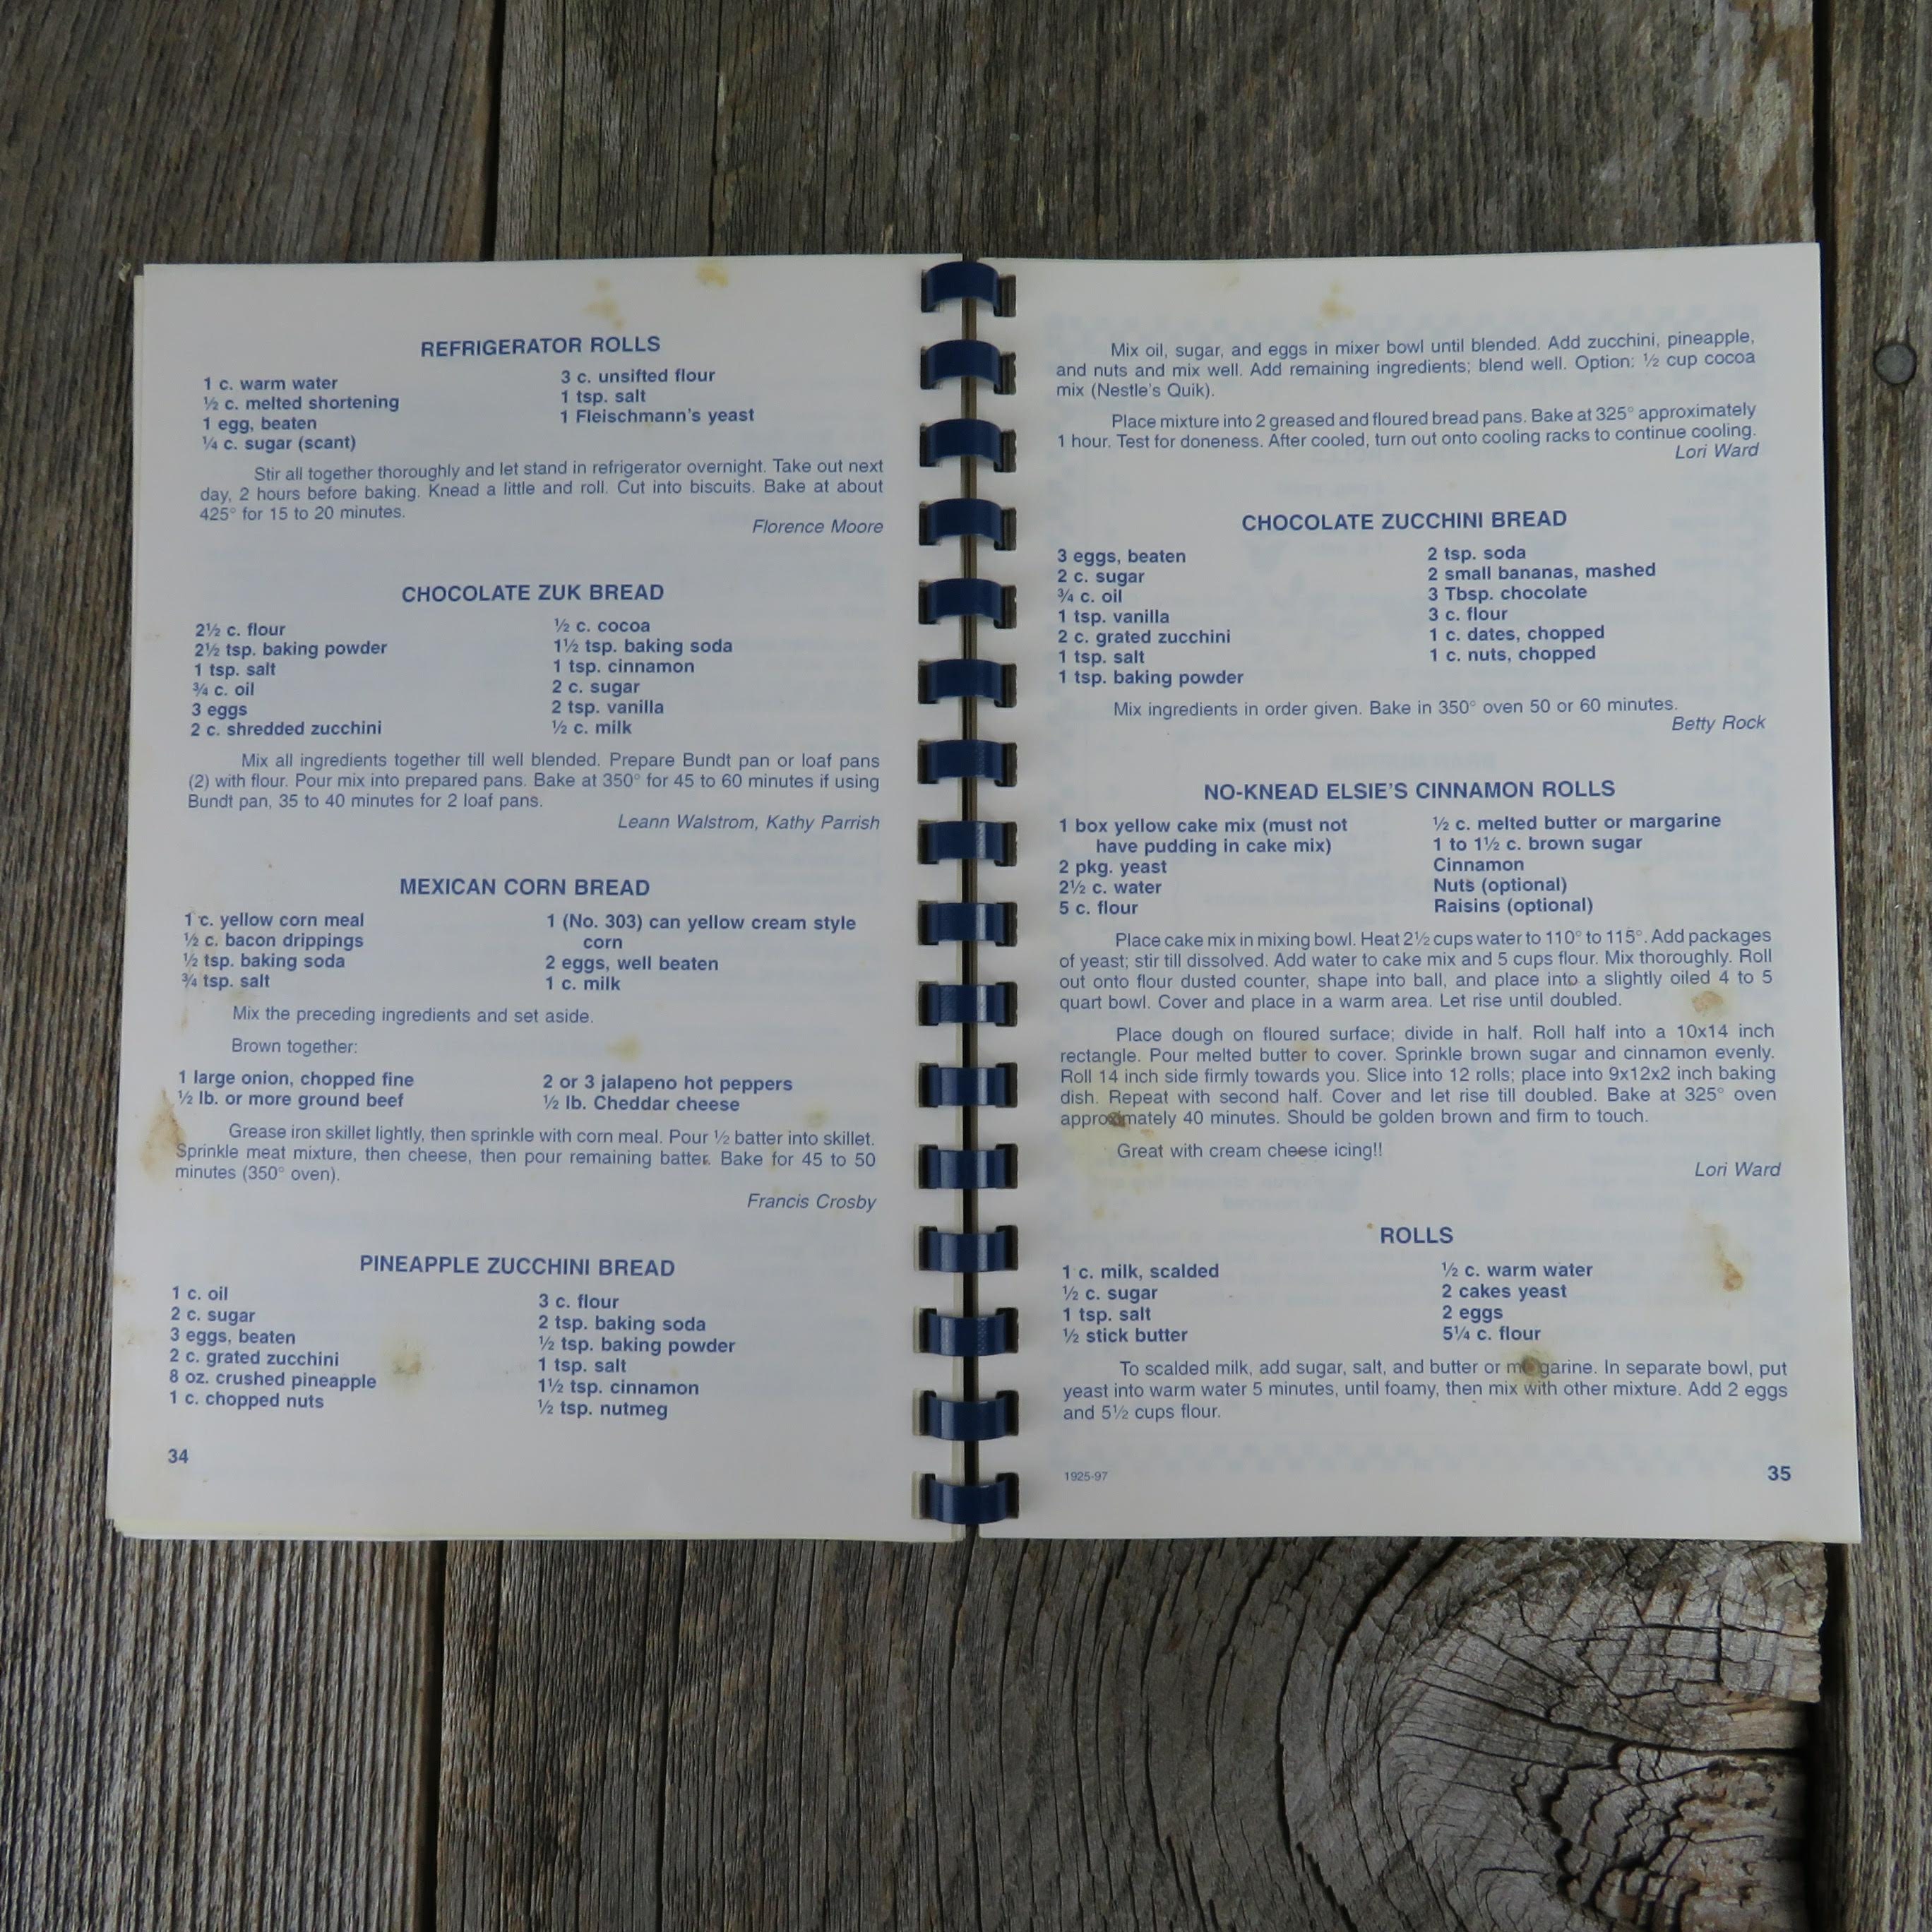 REFRIGERATOR ROLLS
1 c. warm water
½ c. melted shortening
1 egg, beaten
¼ c. sugar (scant)
3 c. unsifted flour
1 tsp. salt
1 Fleischmann's yeast
Stir all together thoroughly and let stand in refrigerator overnight. Take out next
day, 2 hours before baking. Knead a little and roll. Cut into biscuits. Bake at about
425° for 15 to 20 minutes.
Florence Moore
CHOCOLATE ZUK BREAD
2½ c. flour
2½ tsp. baking powder
1 tsp. salt
¾ c. oil
3 eggs
2 c. shredded zucchini
½ c. cocoa
1½ tsp. baking soda
1 tsp. cinnamon
2 c. sugar
2 tsp. vanilla
½ c. milk
Mix all ingredients together till well blended. Prepare Bundt pan or loaf pans
(2) with flour. Pour mix into prepared pans. Bake at 350° for 45 to 60 minutes if using
Bundt pan, 35 to 40 minutes for 2 loaf pans.
Leann Walstrom, Kathy Parrish
MEXICAN CORN BREAD
1 c. yellow corn meal
½ c. bacon drippings
½ tsp. baking soda
¾ tsp. salt
1 (No. 303) can yellow cream style
corn
2 eggs, well beaten
1 c. milk
Mix the preceding ingredients and set aside.
Brown together:
1 large onion, chopped fine
½ lb. or more ground beef
2 or 3 jalapeno hot peppers
½ lb. Cheddar cheese
Grease iron skillet lightly, then sprinkle with corn meal. Pour ½ batter into skillet.
Sprinkle meat mixture, then cheese, then pour remaining batter. Bake for 45 to 50
minutes (350° oven).
Francis Crosby
PINEAPPLE ZUCCHINI BREAD
1 c. oil
2 c. sugar
3 eggs, beaten
2 c. grated zucchini
8 oz. crushed pineapple
1 c. chopped nuts
3 c. flour
2 tsp. baking soda
½ tsp. baking powder
1 tsp. salt
1½ tsp. cinnamon
½ tsp. nutmeg
34
Mix oil, sugar, and eggs in mixer bowl until blended. Add zucchini, pineapple,
and nuts and mix well. Add remaining ingredients; blend well. Option: ½ cup cocoa
mix (Nestle's Quik).
Place mixture into 2 greased and floured bread pans. Bake at 325° approximately
1 hour. Test for doneness. After cooled, turn out onto cooling racks to continue cooling.
Lori Ward
CHOCOLATE ZUCCHINI BREAD
3 eggs, beaten
2 c. sugar
¾ c. oil
1 tsp. vanilla
2 c. grated zucchini
1 tsp. salt
1 tsp. baking powder
2 tsp. soda
2 small bananas, mashed
3 Tbsp. chocolate
3 c. flour
1 c. dates, chopped
1 c. nuts, chopped
Mix ingredients in order given. Bake in 350° oven 50 or 60 minutes.
Betty Rock
NO-KNEAD ELSIE'S CINNAMON ROLLS
1 box yellow cake mix (must not
have pudding in cake mix)
2 pkg. yeast
2½ c. water
5 c. flour
½ c. melted butter or margarine
1 to 1½ c. brown sugar
Cinnamon
Nuts (optional)
Raisins (optional)
Place cake mix in mixing bowl. Heat 2½ cups water to 110° to 115°. Add packages
of yeast; stir till dissolved. Add water to cake mix and 5 cups flour. Mix thoroughly. Roll
out onto flour dusted counter, shape into ball, and place into a slightly oiled 4 to 5
quart bowl. Cover and place in a warm area. Let rise until doubled.
Place dough on floured surface; divide in half. Roll half into a 10x14 inch
rectangle. Pour melted butter to cover. Sprinkle brown sugar and cinnamon evenly.
Roll 14 inch side firmly towards you. Slice into 12 rolls; place into 9x12x2 inch baking
dish. Repeat with second half. Cover and let rise till doubled. Bake at 325° oven
approximately 40 minutes. Should be golden brown and firm to touch.
Great with cream cheese icing!!
Lori Ward
ROLLS
1 c. milk, scalded
½ c. sugar
1 tsp. salt
½ stick butter
½ c. warm water
2 cakes yeast
2 eggs
5¼ c. flour
To scalded milk, add sugar, salt, and butter or margarine. In separate bowl, put
yeast into warm water 5 minutes, until foamy, then mix with other mixture. Add 2 eggs
and 5½ cups flour.
1925-97
35